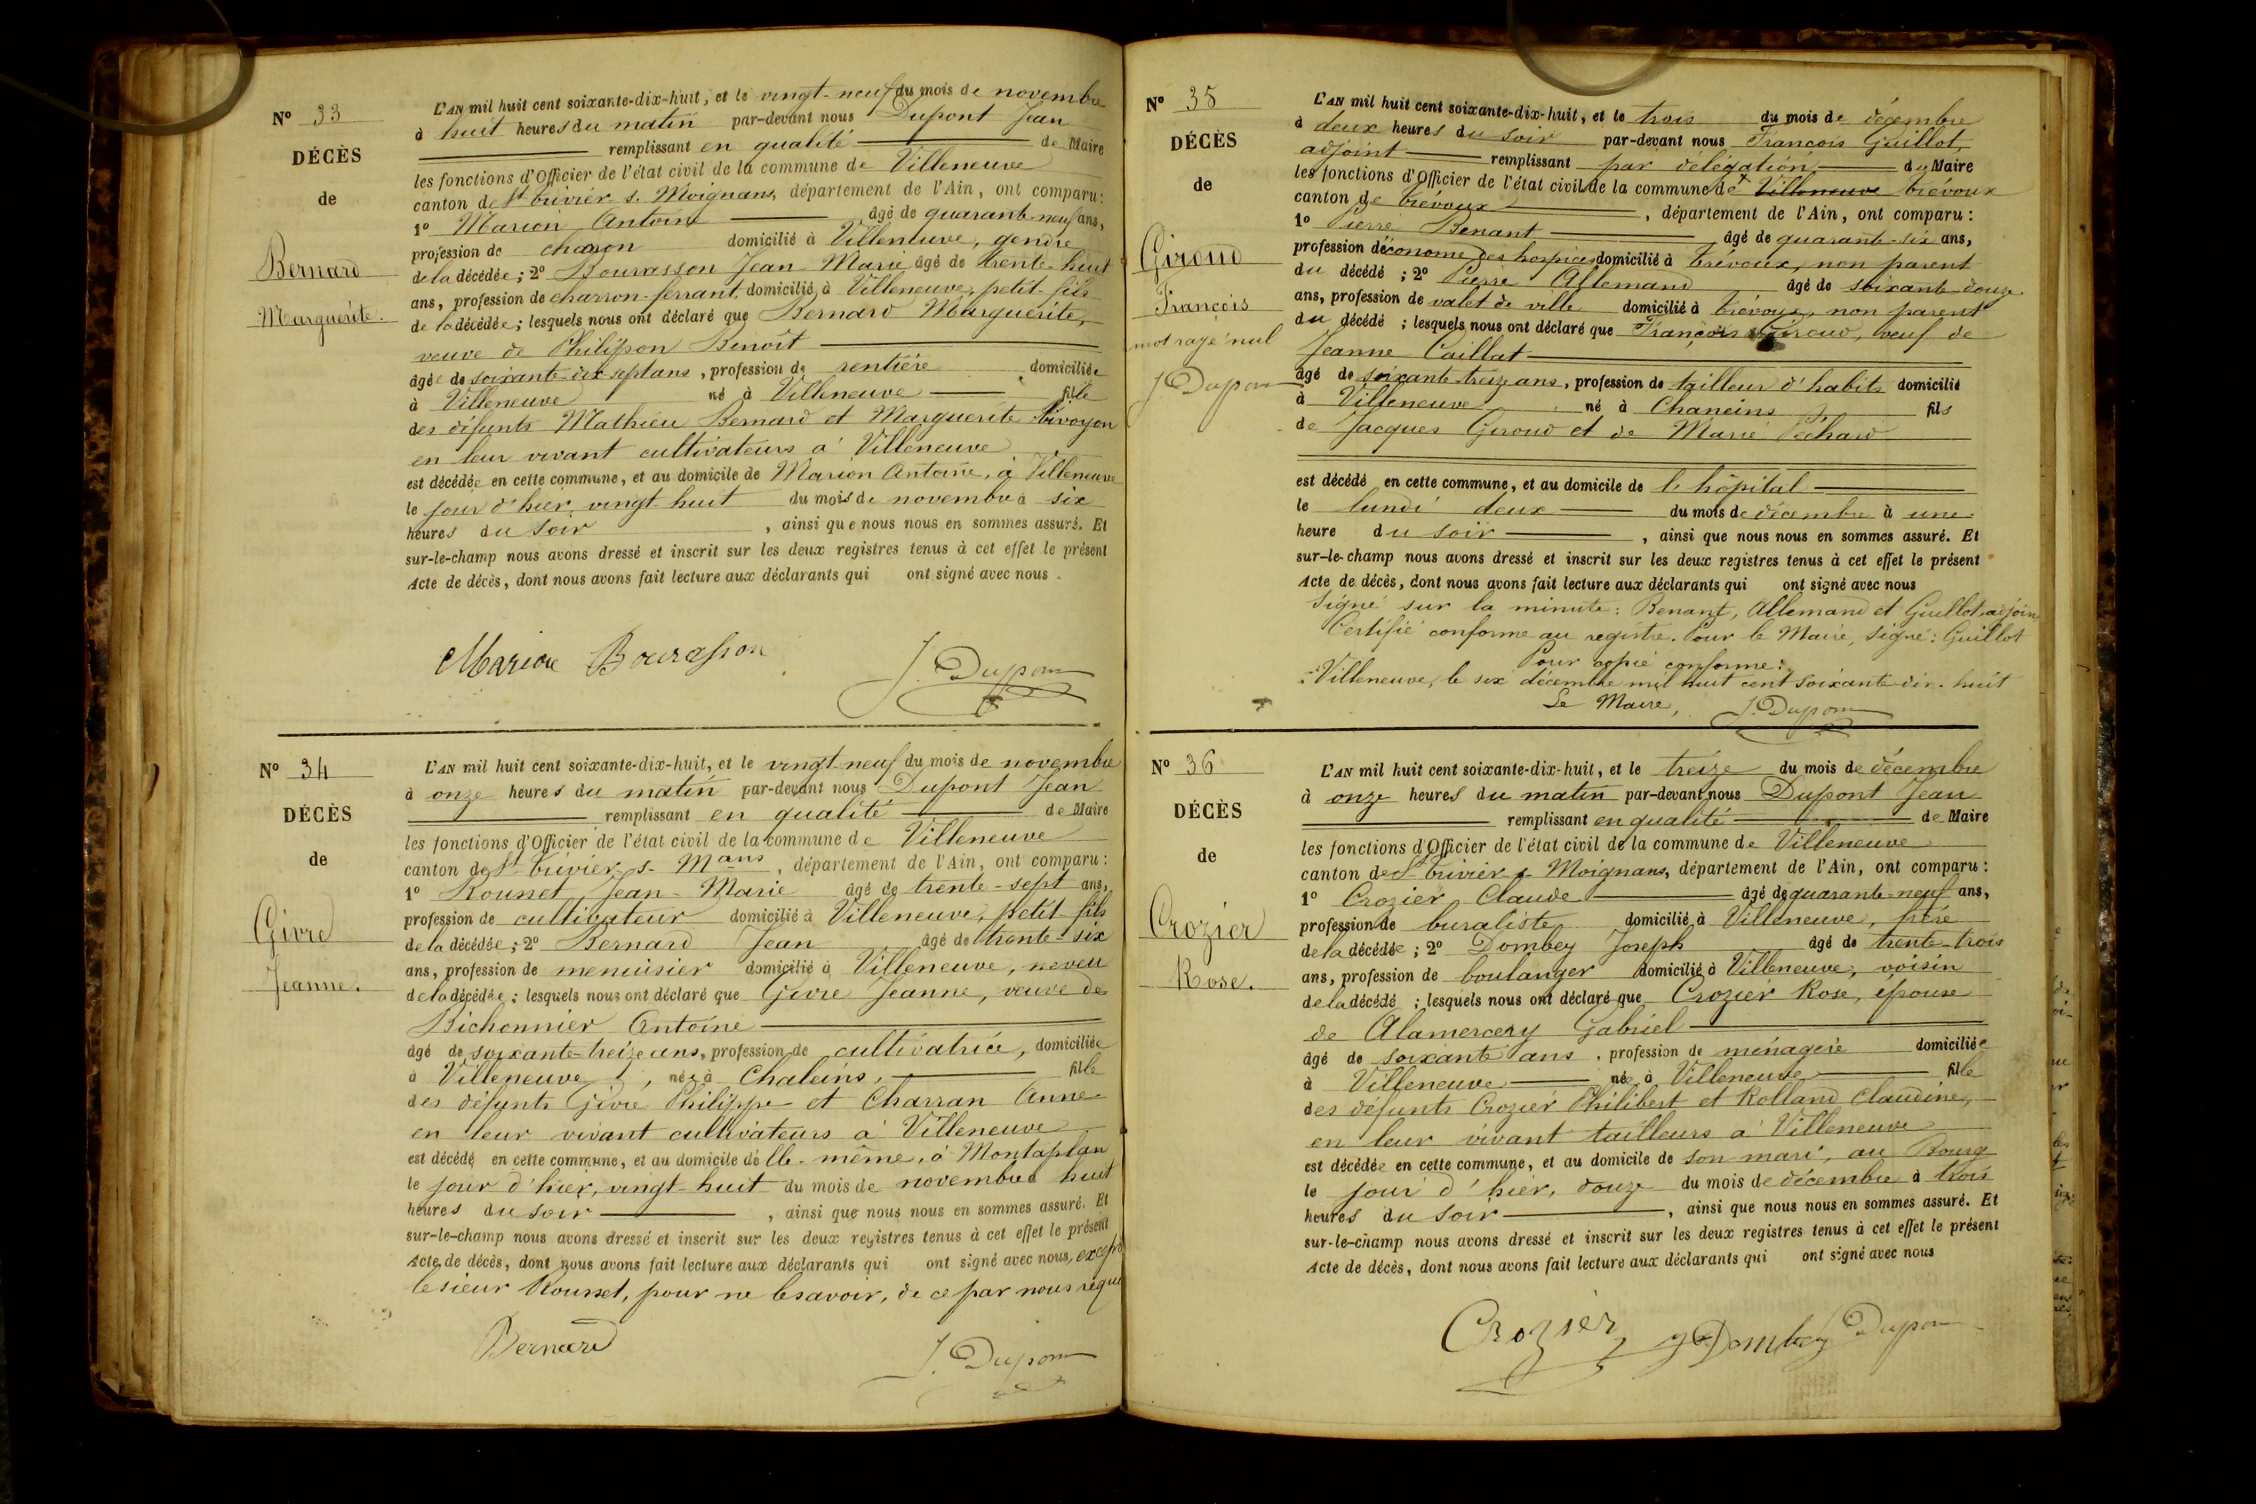 Nº 33
DÉCÈS
de
Bernard
Marguerite.
L'AN mil huit cent soixante-dix-huit, et le vingt-neuf du mois de novembre
à huit heures du matin par-devant nous Dupont Jean
remplissant en qualité de Maire
les fonctions d'Officier de l'état civil de la commune de Villeneuve
canton de St trivier s. Moignans, département de l'Ain, ont comparu :
1º Marion Antoine âgé de quarante-neuf ans,
profession de charron domicilié à Villeneuve, gendre
de la décédée ; 2º Bourasson Jean-Marie âgé de trente-huit
ans, profession de charron-ferrant, domicilié à Villeneuve, petit-fils
de la décédée ; lesquels nous ont déclaré que Bernard Marguerite,
veuve de Philipon Benoît
âgée de soixante-dix-sept ans, profession de rentière domiciliée
à Villeneuve né à Villeneuve fille
des défunts Mathieu Bernard et Marguerite
en leur vivant cultivateurs à Villeneuve
est décédée en cette commune, et au domicile de Marion Antoine, à Villeneuve
le jour d'hier, vingt huit du mois de novembre à six
heures du soir, ainsi que nous nous en sommes assuré. Et
sur-le-champ nous avons dressé et inscrit sur les deux registres tenus à cet effet le présent
Acte de décès, dont nous avons fait lecture aux déclarants qui ont signé avec nous.
Marion Bourasson J. Dupont
Nº 34
DÉCÈS
de
Givre
Jeanne.
L'AN mil huit cent soixante-dix-huit, et le vingt-neuf du mois de novembre
à onze heures du matin par-devant nous Dupont Jean
remplissant en qualité de Maire
les fonctions d'Officier de l'état civil de la commune de Villeneuve
canton de St trivier s. Mans, département de l'Ain, ont comparu :
1º Rousset Jean-Marie âgé de trente-sept ans,
profession de cultivateur domicilié à Villeneuve, petit-fils
de la décédée ; 2º Bernard Jean âgé de trente-six
ans, profession de menuisier domicilié à Villeneuve, neveu
de la décédée ; lesquels nous ont déclaré que Givre Jeanne, veuve de
Bichonnier Antoine
âgé de soixante-treize ans, profession de cultivatrice, domiciliée
à Villeneuve, née à Chaleins, fille
des défunts Givre Philippe et Charran Anne
en leur vivant cultivateurs à Villeneuve
est décédé en cette commune, et au domicile d'elle-même, à Montaplan
le jour d'hier, vingt-huit du mois de novembre à huit
heures du soir, ainsi que nous nous en sommes assuré. Et
sur-le-champ nous avons dressé et inscrit sur les deux registres tenus à cet effet le présent
Acte de décès, dont nous avons fait lecture aux déclarants qui ont signé avec nous, excepté
le sieur Rousset, pour ne le savoir, de ce par nous requis
Bernard J. Dupont
Nº 35
DÉCÈS
de
Giroud
François
mot rayé nul
J Dupont
L'AN mil huit cent soixante-dix-huit, et le trois du mois de décembre
à deux heures du soir par-devant nous François Guillot,
adjoint remplissant par délégation du Maire
les fonctions d'Officier de l'état civil de la commune de Villeneuve trévoux
canton de trévoux, département de l'Ain, ont comparu :
1º Pierre Benant âgé de quarante-six ans,
profession d'économe des hospices domicilié à trévoux, non parent
du décédé ; 2º Pierre Allemand âgé de soixante-douze
ans, profession de valet de ville domicilié à trévoux, non parent
du décédé ; lesquels nous ont déclaré que François Giroud, veuf de
Jeanne Caillat
âgé de soixante-treize ans, profession de tailleur d'habits domicilié
à Villeneuve né à Chaneins fils
de Jacques Giroud et de Marie Péchard
est décédé en cette commune, et au domicile de l'hôpital
le lundi deux du mois de décembre à une
heure du soir, ainsi que nous nous en sommes assuré. Et
sur-le-champ nous avons dressé et inscrit sur les deux registres tenus à cet effet le présent
Acte de décès, dont nous avons fait lecture aux déclarants qui ont signé avec nous
Signé sur la minute : Benant, Allemand et Guillot adjoint
Certifié conforme au registre. Pour le Maire, signé : Guillot
Pour copie conforme :
Villeneuve, le six décembre mil huit cent soixante-dix-huit
Le Maire, J. Dupont
Nº 36
DÉCÈS
de
Crozier
Rose.
L'AN mil huit cent soixante-dix-huit, et le treize du mois de décembre
à onze heures du matin par-devant nous Dupont Jean
remplissant en qualité de Maire
les fonctions d'Officier de l'état civil de la commune de Villeneuve
canton de St trivier s. Moignans, département de l'Ain, ont comparu :
1º Crozier Claude âgé de quarante-neuf ans,
profession de buraliste domicilié à Villeneuve, frère
de la décédée ; 2º Dombey Joseph âgé de trente-trois
ans, profession de boulanger domicilié à Villeneuve, voisin
de la décédé ; lesquels nous ont déclaré que Crozier Rose, épouse
de Alamercery Gabriel
âgé de soixante ans, profession de ménagère domiciliée
à Villeneuve née à Villeneuve fille
des défunts Crozier Philibert et Rolland Claudine,
en leur vivant tailleurs à Villeneuve
est décédée en cette commune, et au domicile de son mari, au Bourg
le jour d'hier, douze du mois de décembre à trois
heures du soir, ainsi que nous nous en sommes assuré. Et
sur-le-champ nous avons dressé et inscrit sur les deux registres tenus à cet effet le présent
Acte de décès, dont nous avons fait lecture aux déclarants qui ont signé avec nous
Crozier J Dombey Dupont